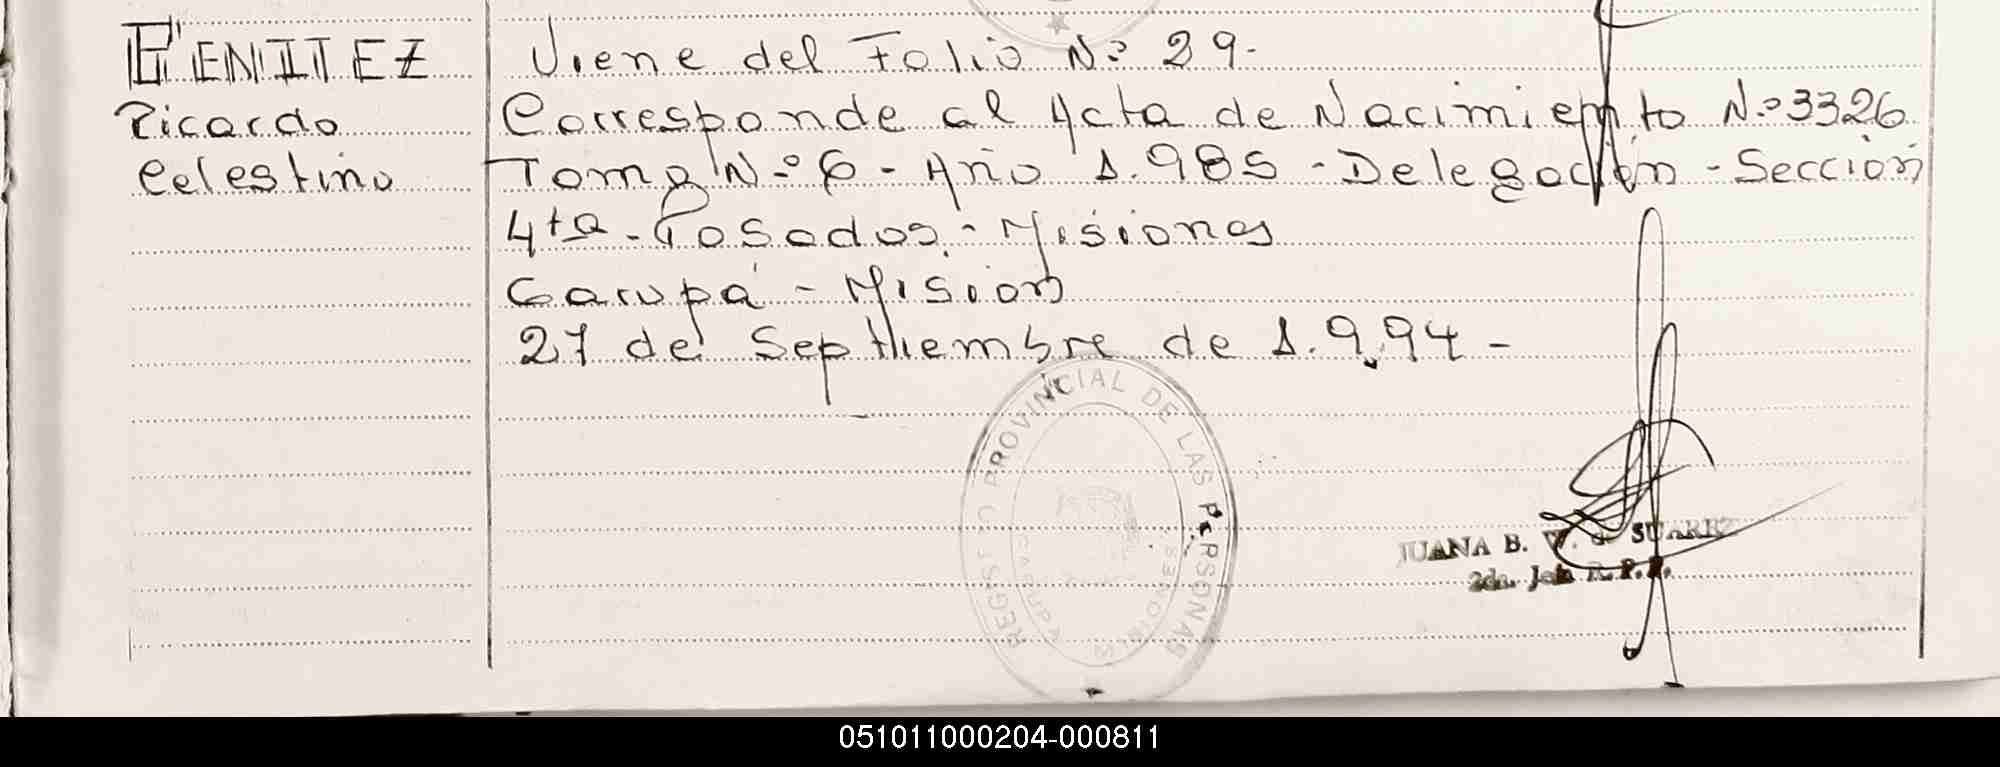 BENITEZ
Ricardo
Celestino
Viene del Folio N.º 29.
Corresponde al Acta de Nacimiento N.º 3326
Tomo N.º 6 - Año 1.985 - Delegación - Sección
4ta - Posadas - Misiones
Garupá - Mision
27 de Septiembre de 1.994 -
REGISTRO PROVINCIAL DE LAS PERSONAS
GARUPA
MISIONES
JUANA B. V. de SUAREZ
2da. Jefa R. P. P.
051011000204-000811